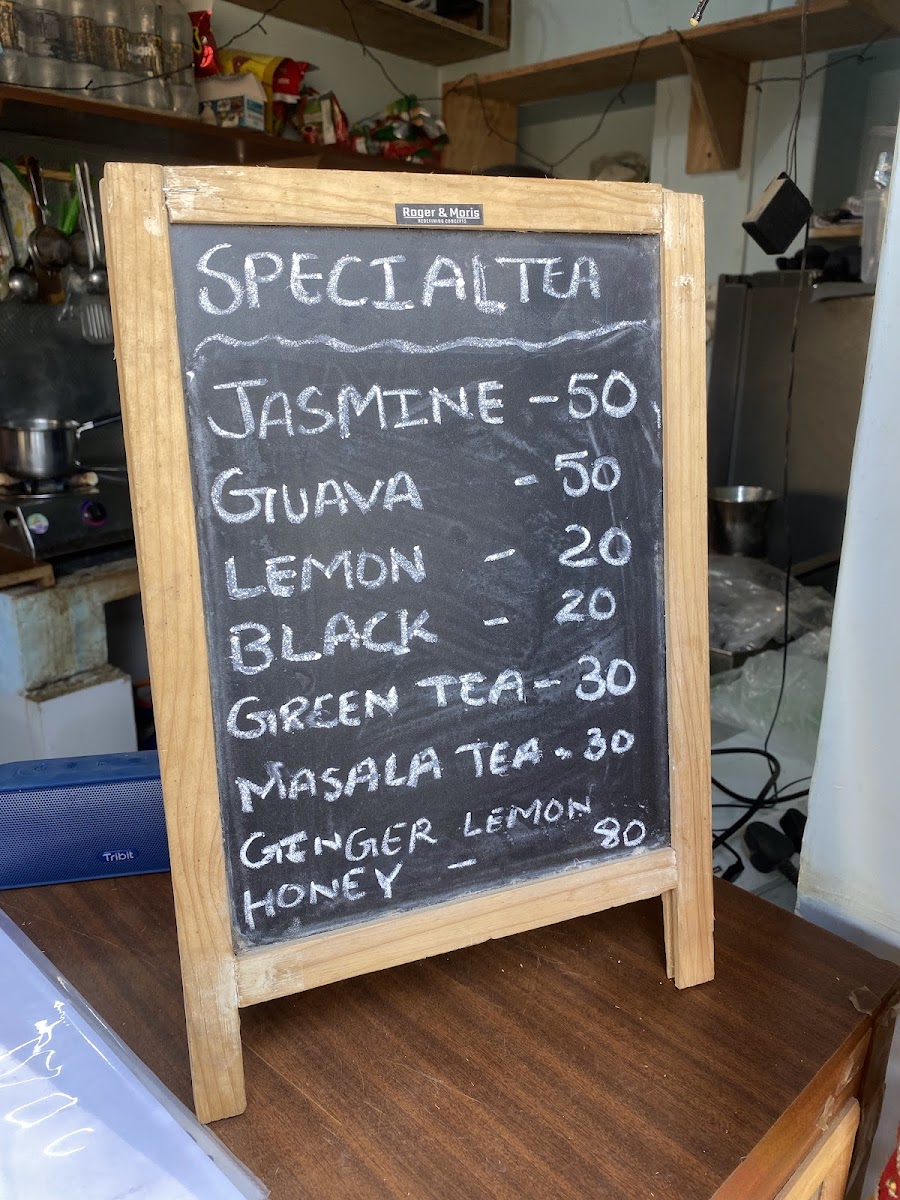 Roger & Moris
REDEFINING CONCEPTS
SPECIALTEA
JASMINE - 50
GUAVA - 50
LEMON - 20
BLACK - 20
GREEN TEA - 30
MASALA TEA - 30
GINGER LEMON
HONEY - 80
Tribit